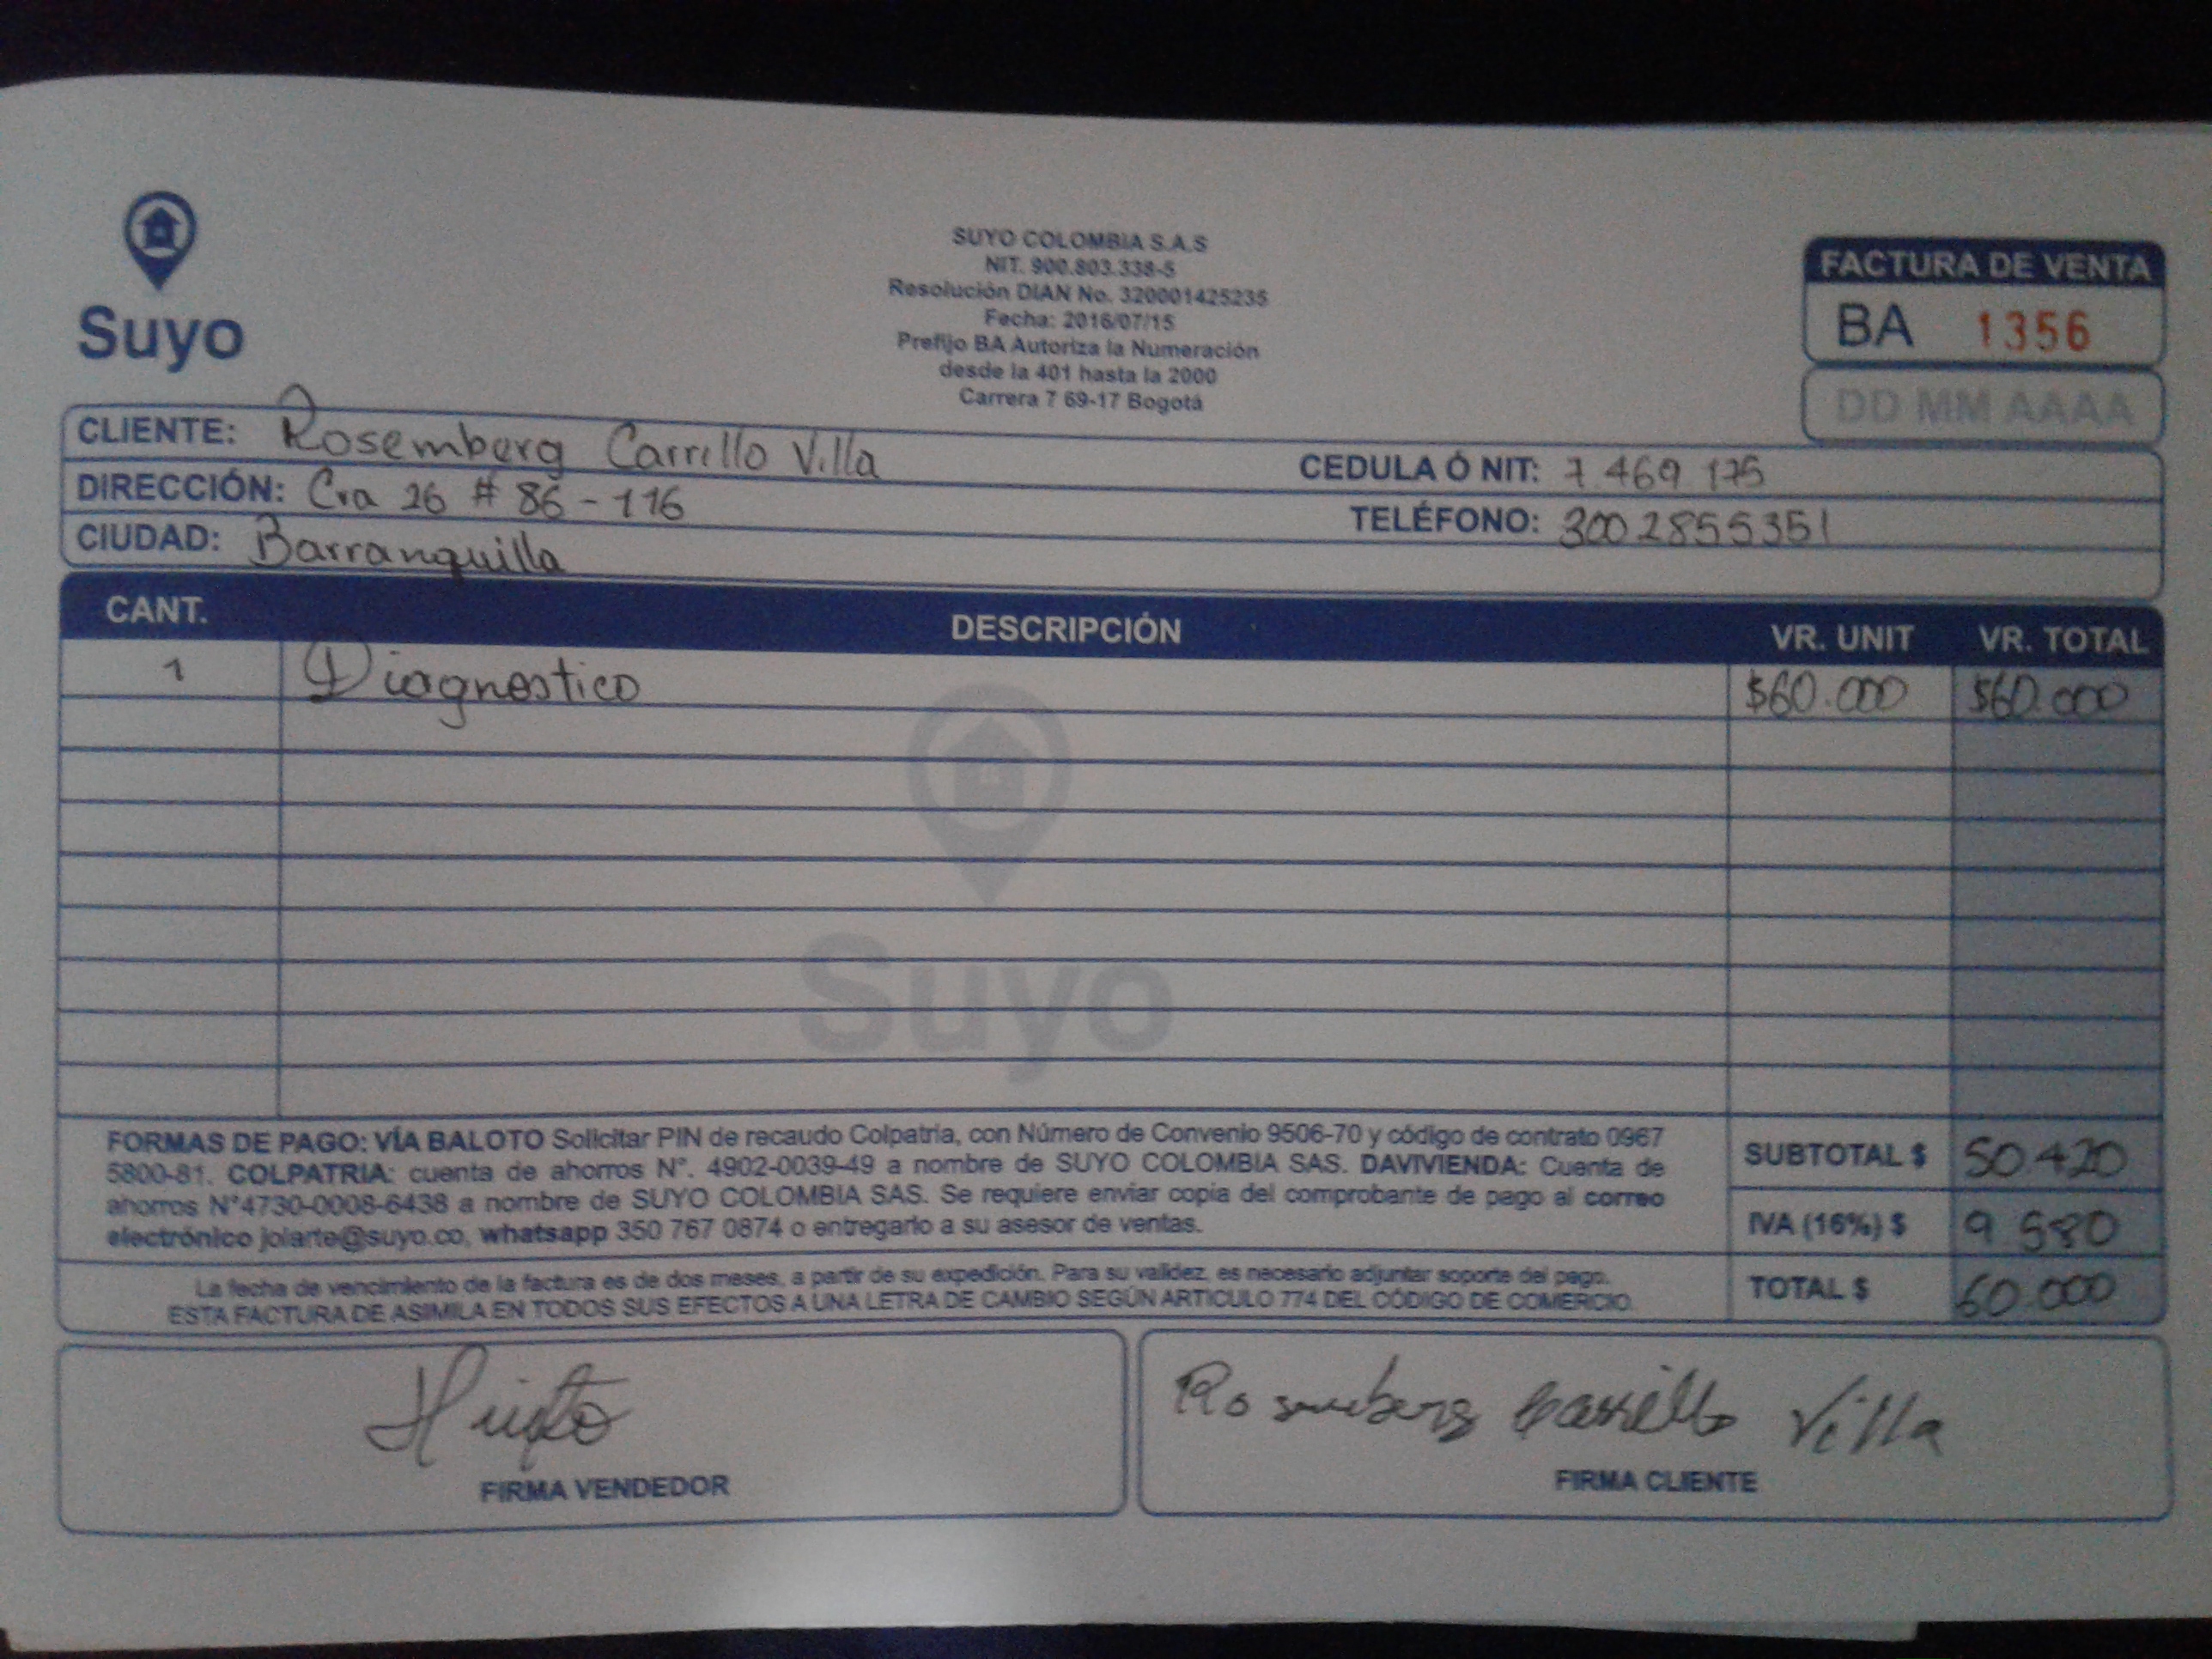 Suyo
SUYO COLOMBIA S.A.S
NIT. 900.803.338-5
Resolución DIAN No. 320001425235
Fecha: 2016/07/15
Prefijo BA Autoriza la Numeración
desde la 401 hasta la 2000
Carrera 7 69-17 Bogotá
FACTURA DE VENTA
BA 1356
DD MM AAAA
CLIENTE: Rosemberg Carrillo Villa
CEDULA Ó NIT: 7 469 175
DIRECCIÓN: Cra 26 # 86 - 116
TELÉFONO: 300 2855351
CIUDAD: Barranquilla
CANT. DESCRIPCIÓN VR. UNIT VR. TOTAL
1 Diagnostico $60.000 $60.000
Suyo
FORMAS DE PAGO: VÍA BALOTO Solicitar PIN de recaudo Colpatria, con Número de Convenio 9506-70 y código de contrato 0967
5800-81. COLPATRIA: cuenta de ahorros N°. 4902-0039-49 a nombre de SUYO COLOMBIA SAS. DAVIVIENDA: Cuenta de
ahorros N°4730-0008-6438 a nombre de SUYO COLOMBIA SAS. Se requiere enviar copia del comprobante de pago al correo
electrónico jolarte@suyo.co, whatsapp 350 767 0874 o entregarlo a su asesor de ventas.
SUBTOTAL $ 50.420
IVA (16%) $ 9.580
TOTAL $ 60.000
La fecha de vencimiento de la factura es de dos meses, a partir de su expedición. Para su validez, es necesario adjuntar soporte del pago.
ESTA FACTURA DE ASIMILA EN TODOS SUS EFECTOS A UNA LETRA DE CAMBIO SEGÚN ARTICULO 774 DEL CÓDIGO DE COMERCIO.
Rosemberg Carrillo Villa
FIRMA VENDEDOR
FIRMA CLIENTE